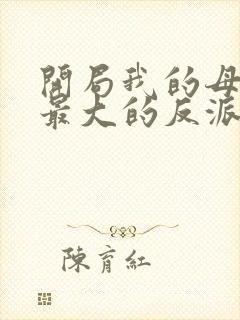 開局我的母
最大的反派
陳育紅